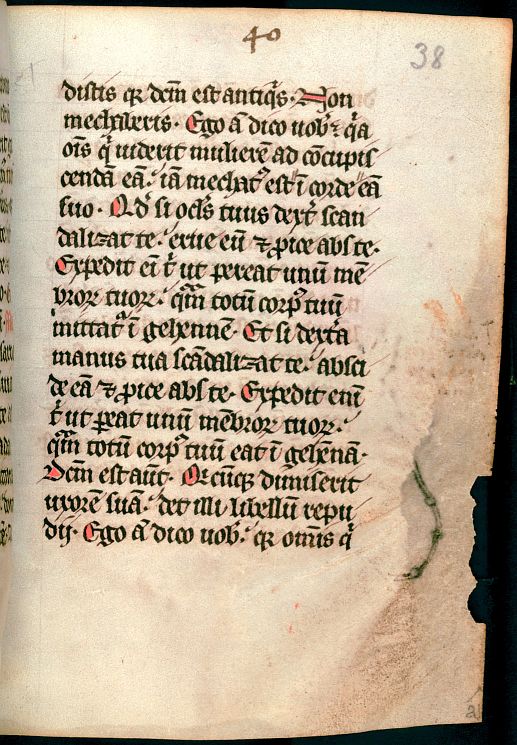 40
38
distis qꝛ dc̄m est antiqͥs. Non
mechaberis. Ego ā dico uobꝫ qͥa
oīs qͥ uiderit mulierē ad cōcupis
cendā eā. iā mechatꝰ est ī corde eā
suo. Qd̓ si oclꝰs tuus dext̓ scan
dalizat te. erue eū ⁊ ꝓice abs te.
Expedit eī t̓ ut pereat unū mē
broꝝ tuoꝝ. qm̄ totū corpꝰ tuū
mittatᷣ ī gehennē. Et si dext̓a
manus tua scādalizat te. absci
de eā ⁊ ꝓice abs te. Expedit enī
t̓ ut ꝑeat unū mēbroꝝ tuoꝝ.
qm̄ totū corpꝰ tuū eat ī gehēnā.
Dc̄m est aūt. Qꝛcūqꝫ dīmiserit
uxorē suā. det illi libellū repu
dij. Ego ā dico uob̓. qꝛ omīs qͥ